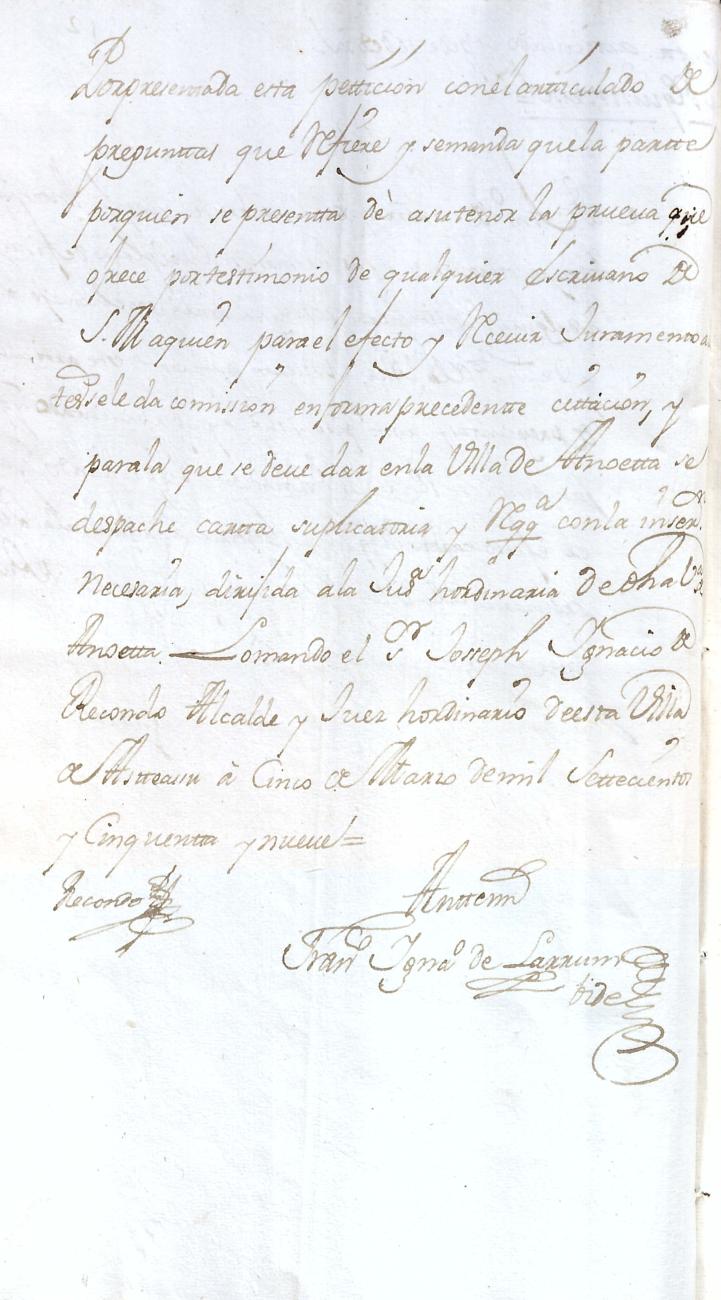 Por presentada esta pettición con el artticulado de
preguntas que Refiere y se manda que la partte
por quien se presentta dè a su tenor la prueva que
ofrece por testimonio de qualquier Escrivano de
S. M. a quien para el efecto y Recevir Juramento a
tes. se le da comission en forma precedentte cittacion, y
para la que se deve dar en la Villa de Anoetta se
despache cartta suplicatoria y Rqq.ª con la inser.on
Necesaria, dirijida a la Jus.ª hordinaria de dha V.ª de
Anoetta. Lo mando el S.r Josseph Ygnacio de
Recondo Alcalde y Juez hordinario de esta Villa
de Astteasu à Cinco de Marzo de mil Settecientos
y Cinquentta y nueve=
Recondo
Antte mi
Fran.co Ygna.o de Larrum
bide